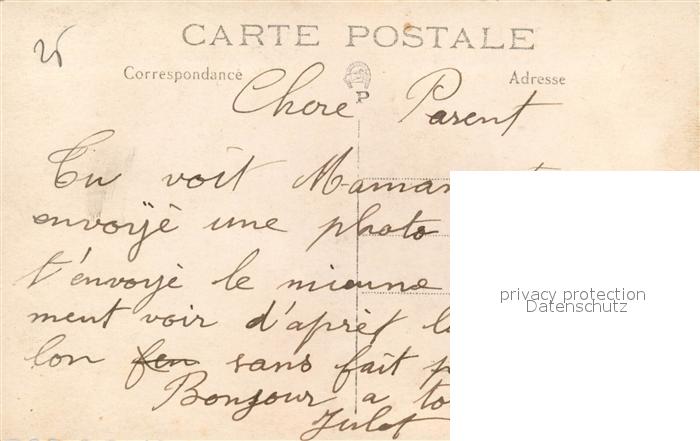 25
CARTE POSTALE
Correspondance
Adresse
Chere Parent
Tu voit Maman
envoÿé une photo
t'envoyé le mieune
ment voir d'aprèt l
lon fen sans fait p
Bonjour a to
Julot
privacy protection
Datenschutz